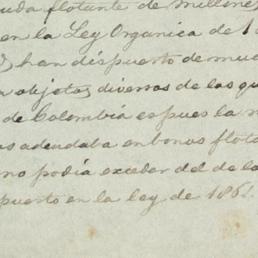 uda flotante de millone
en la Ley Organica de 1
han dispuesto de muc
objetos diversos de las qu
de Colombia es pues la
as adeudaba en bonos flota
no podia exceder del de la
puesto en la ley de 1861.